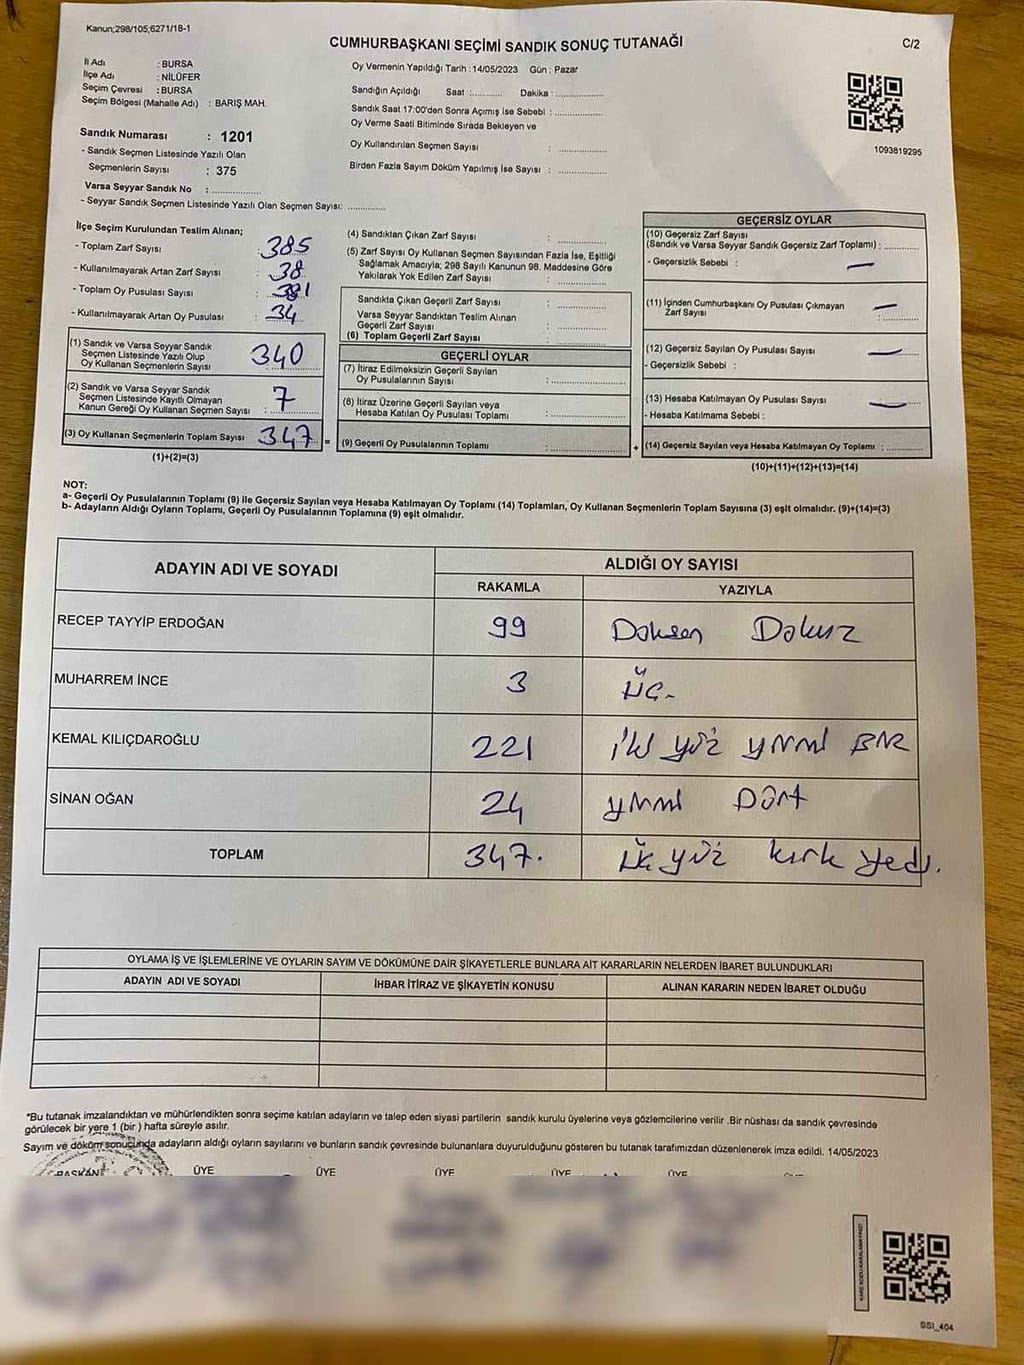 Kanun;298/105;6271/18-1
CUMHURBAŞKANI SEÇİMİ SANDIK SONUÇ TUTANAĞI
C/2
İl Adı : BURSA
İlçe Adı : NİLÜFER
Seçim Çevresi : BURSA
Seçim Bölgesi (Mahalle Adı) : BARIŞ MAH.
Sandık Numarası : 1201
- Sandık Seçmen Listesinde Yazılı Olan
Seçmenlerin Sayısı : 375
Varsa Seyyar Sandık No : ..................
- Seyyar Sandık Seçmen Listesinde Yazılı Olan Seçmen Sayısı: ..............
Oy Vermenin Yapıldığı Tarih : 14/05/2023 Gün : Pazar
Sandığın Açıldığı Saat :........... Dakika : ................
Sandık Saat 17:00'den Sonra Açımış İse Sebebi : ................
Oy Verme Saati Bitiminde Sırada Bekleyen ve
Oy Kullandırılan Seçmen Sayısı : ................
Birden Fazla Sayım Döküm Yapılmış İse Sayısı : ................
1093819295
İlçe Seçim Kurulundan Teslim Alınan;
- Toplam Zarf Sayısı : 385
- Kullanılmayarak Artan Zarf Sayısı : 38
- Toplam Oy Pusulası Sayısı : 381
- Kullanılmayarak Artan Oy Pusulası : 34
(1) Sandık ve Varsa Seyyar Sandık
Seçmen Listesinde Yazılı Olup
Oy Kullanan Seçmenlerin Sayısı : 340
(2) Sandık ve Varsa Seyyar Sandık
Seçmen Listesinde Kayıtlı Olmayan
Kanun Gereği Oy Kullanan Seçmen Sayısı : 7
(3) Oy Kullanan Seçmenlerin Toplam Sayısı : 347
(1)+(2)=(3)
(4) Sandıktan Çıkan Zarf Sayısı : ................
(5) Zarf Sayısı Oy Kullanan Seçmen Sayısından Fazla İse, Eşitliği
Sağlamak Amacıyla; 298 Sayılı Kanunun 98. Maddesine Göre
Yakılarak Yok Edilen Zarf Sayısı : ................
Sandıkta Çıkan Geçerli Zarf Sayısı : ................
Varsa Seyyar Sandıktan Teslim Alınan
Geçerli Zarf Sayısı : ................
(6) Toplam Geçerli Zarf Sayısı : ................
GEÇERLİ OYLAR
(7) İtiraz Edilmeksizin Geçerli Sayılan
Oy Pusulalarının Sayısı : ................
(8) İtiraz Üzerine Geçerli Sayılan veya
Hesaba Katılan Oy Pusulası Toplamı : ................
= (9) Geçerli Oy Pusulalarının Toplamı : ................
GEÇERSİZ OYLAR
(10) Geçersiz Zarf Sayısı
(Sandık ve Varsa Seyyar Sandık Geçersiz Zarf Toplamı) : ..........
- Geçersizlik Sebebi : —
(11) İçinden Cumhurbaşkanı Oy Pusulası Çıkmayan
Zarf Sayısı : —
(12) Geçersiz Sayılan Oy Pusulası Sayısı : —
- Geçersizlik Sebebi :
(13) Hesaba Katılmayan Oy Pusulası Sayısı : —
- Hesaba Katılmama Sebebi :
+ (14) Geçersiz Sayılan veya Hesaba Katılmayan Oy Toplamı : ..........
(10)+(11)+(12)+(13)=(14)
NOT:
a- Geçerli Oy Pusulalarının Toplamı (9) ile Geçersiz Sayılan veya Hesaba Katılmayan Oy Toplamı (14) Toplamları, Oy Kullanan Seçmenlerin Toplam Sayısına (3) eşit olmalıdır. (9)+(14)=(3)
b- Adayların Aldığı Oyların Toplamı, Geçerli Oy Pusulalarının Toplamına (9) eşit olmalıdır.
ADAYIN ADI VE SOYADI ALDIĞI OY SAYISI
RAKAMLA YAZIYLA
RECEP TAYYİP ERDOĞAN 99 Doksan Dokuz
MUHARREM İNCE 3 üç-
KEMAL KILIÇDAROĞLU 221 iki yüz yirmi Bir
SİNAN OĞAN 24 yirmi Dört
TOPLAM 347. üç yüz kırk yedi.
OYLAMA İŞ VE İŞLEMLERİNE VE OYLARIN SAYIM VE DÖKÜMÜNE DAİR ŞİKAYETLERLE BUNLARA AİT KARARLARIN NELERDEN İBARET BULUNDUKLARI
ADAYIN ADI VE SOYADI İHBAR İTİRAZ VE ŞİKAYETİN KONUSU ALINAN KARARIN NEDEN İBARET OLDUĞU
*Bu tutanak imzalandıktan ve mühürlendikten sonra seçime katılan adayların ve talep eden siyasi partilerin sandık kurulu üyelerine veya gözlemcilerine verilir .Bir nüshası da sandık çevresinde
görülecek bir yere 1 (bir ) hafta süreyle asılır.
Sayım ve döküm sonucunda adayların aldığı oyların sayılarını ve bunların sandık çevresinde bulunanlara duyurulduğunu gösteren bu tutanak tarafımızdan düzenlenerek imza edildi. 14/05/2023
BAŞKAN ÜYE ÜYE ÜYE ÜYE ÜYE
KARE KODU KARALAMAYINIZ!
SSI_404